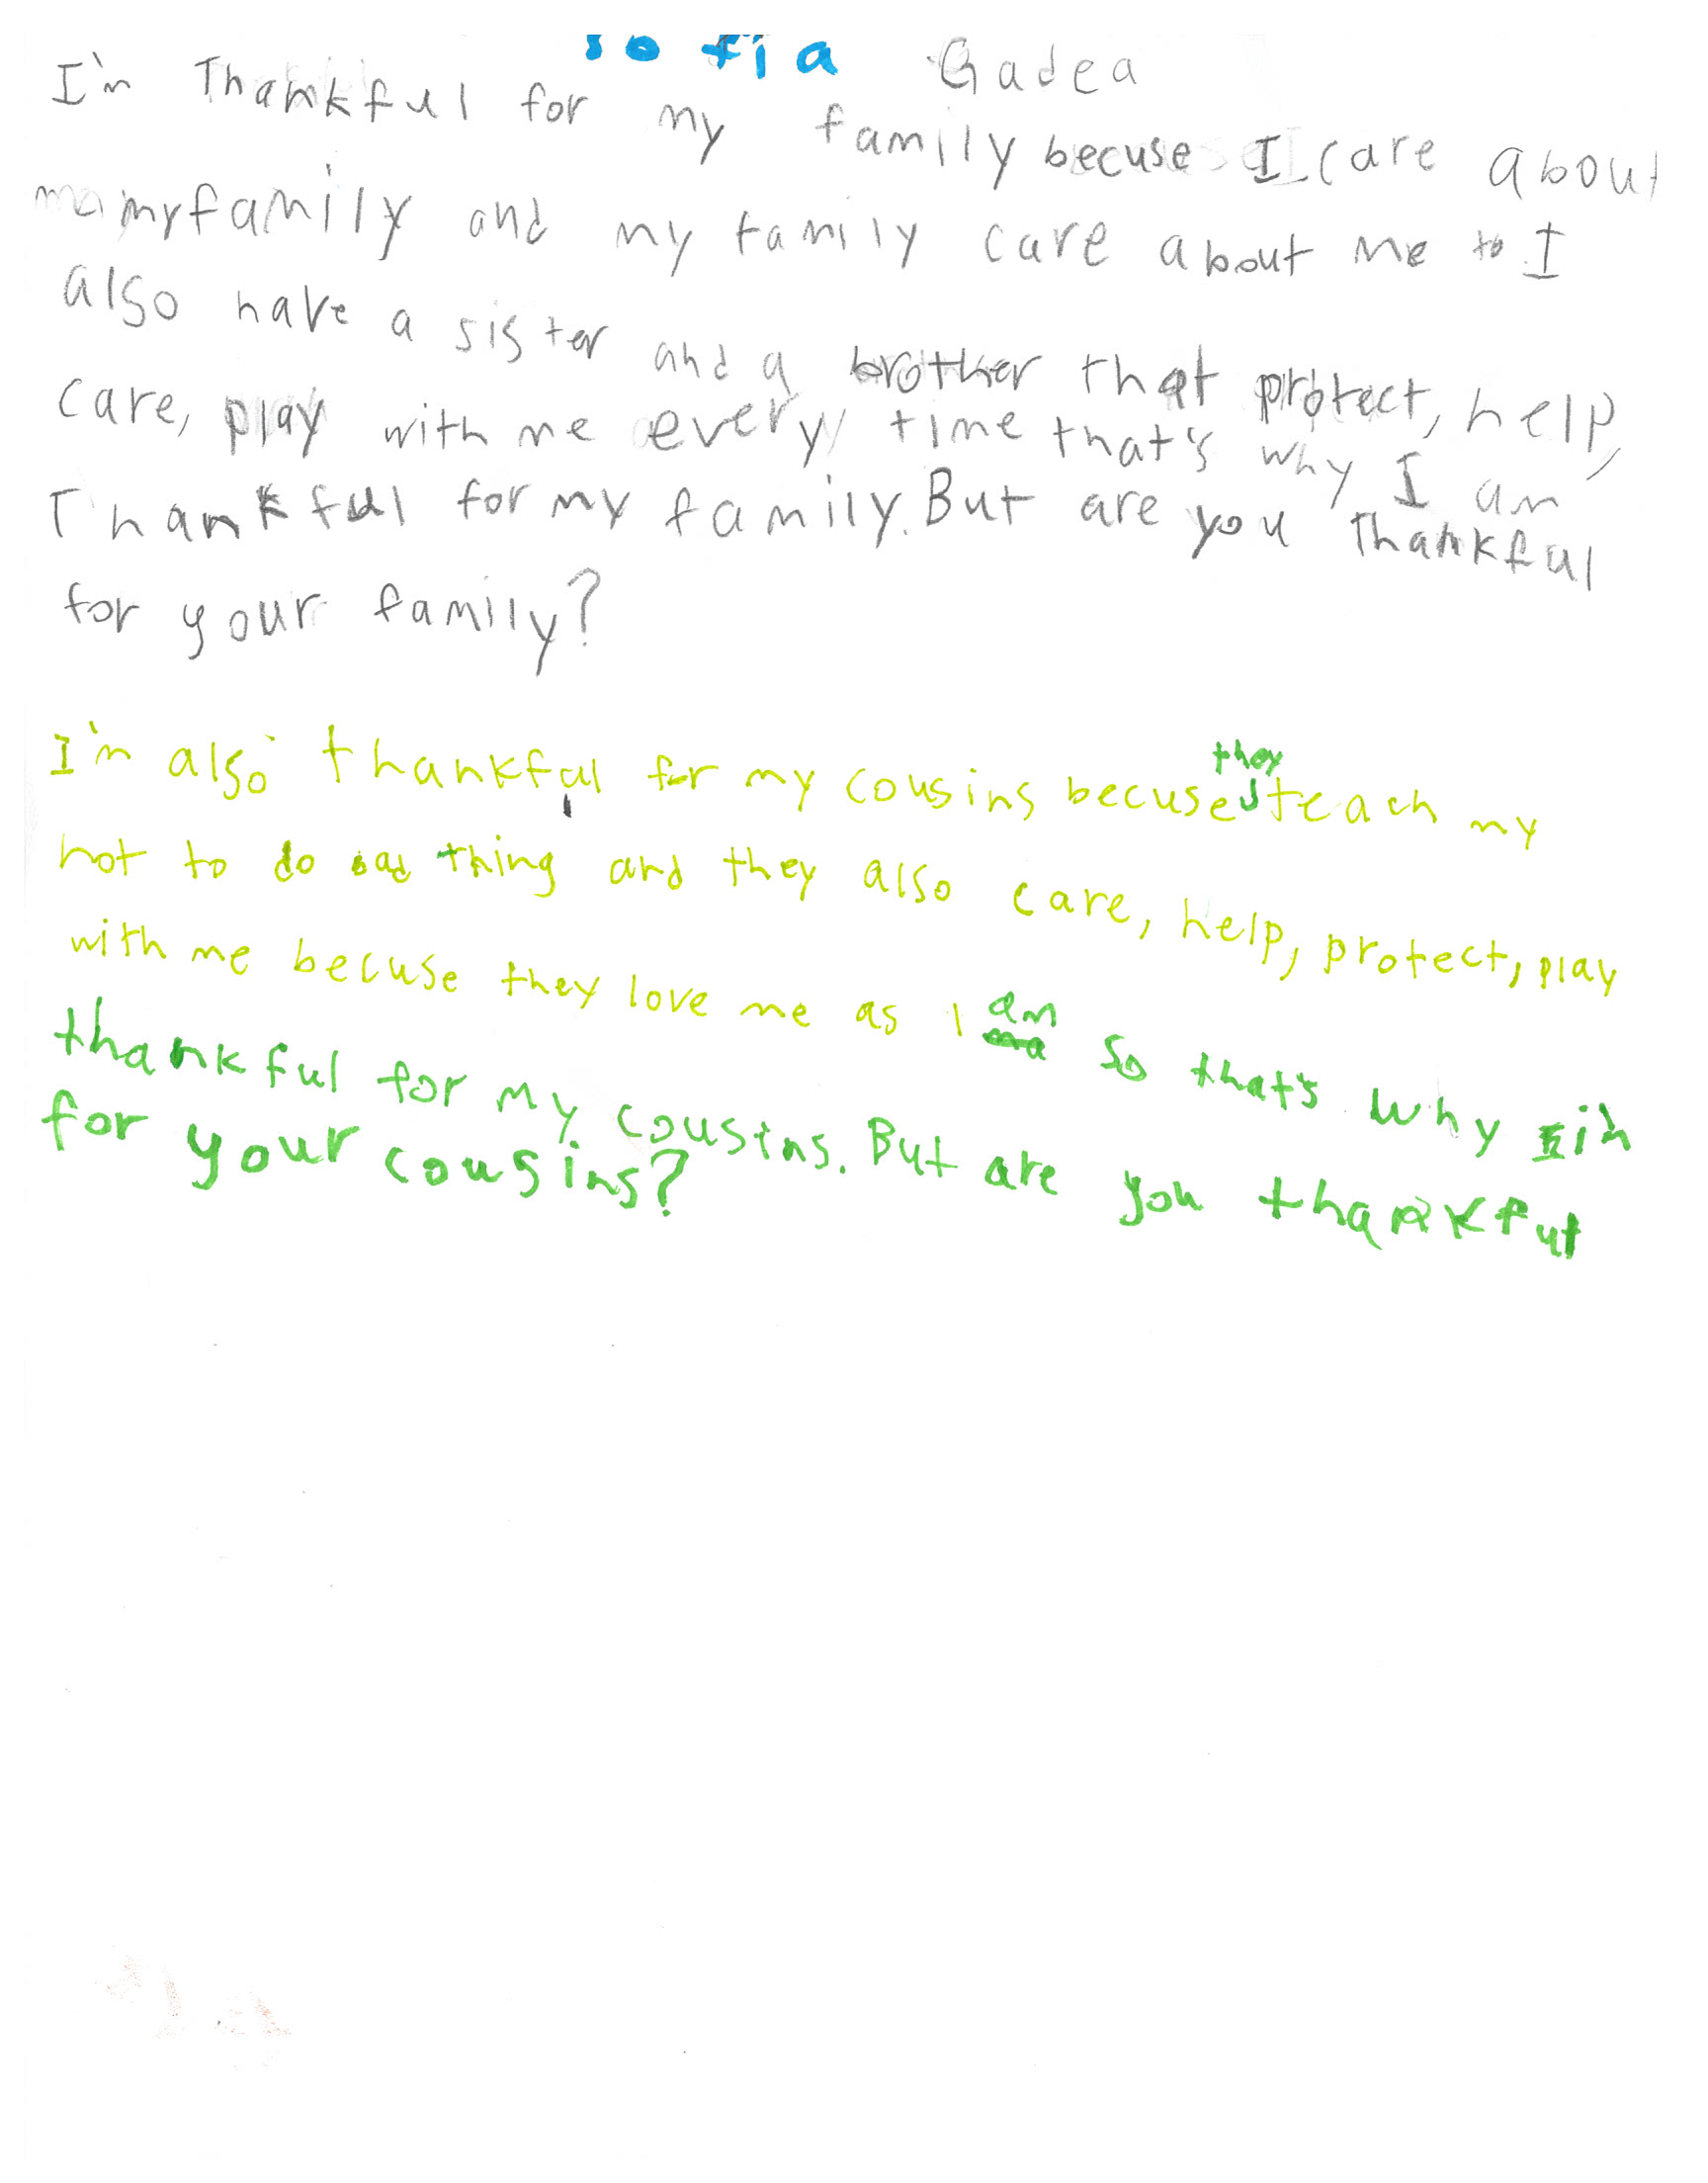 sofia Gadea
I'm Thankful for my family becuse I care about
my family and my family care about me to I
also have a sister and a brother that protect, help,
care, play with me every time that's why I am
Thankful for my family. But are you Thankful
for your family?
I'm also thankful for my cousins becuse they teach my
not to do bad thing and they also care, help, protect, play
with me becuse they love me as I am so that's why I'm
thankful for my cousins. But are you thankful
for your cousins?